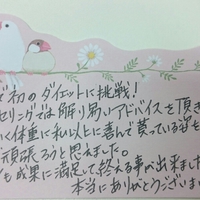 で初のダイエットに挑戦！
セリングでは解り易いアドバイスを頂き
いく体重に私以上に喜んで貰っている姿も
ご頑張ろうと思えました。
も成果に満足して終える事が出来ました
本当にありがとうございま